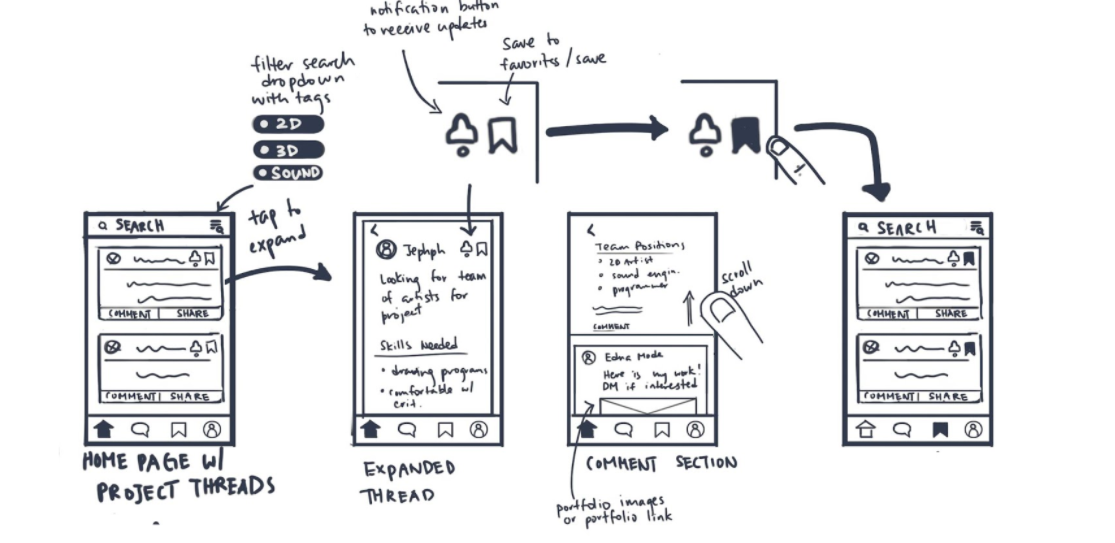 notification button
to receive updates
save to
favorites/save
filter search
dropdown
with tags
2D
3D
SOUND
tap to
expand
SEARCH
COMMENT | SHARE
COMMENT | SHARE
HOME PAGE W/
PROJECT THREADS
Jephph
Looking for team
of artists for
project
Skills Needed
• drawing programs
• comfortable w/
crit.
EXPANDED
THREAD
Team Positions
• 2D Artist
• sound engin.
• programmer
COMMENT
scroll
down
Edna Mode
Here is my work!
DM if interested
COMMENT SECTION
portfolio images
or portfolio link
SEARCH
COMMENT | SHARE
COMMENT | SHARE